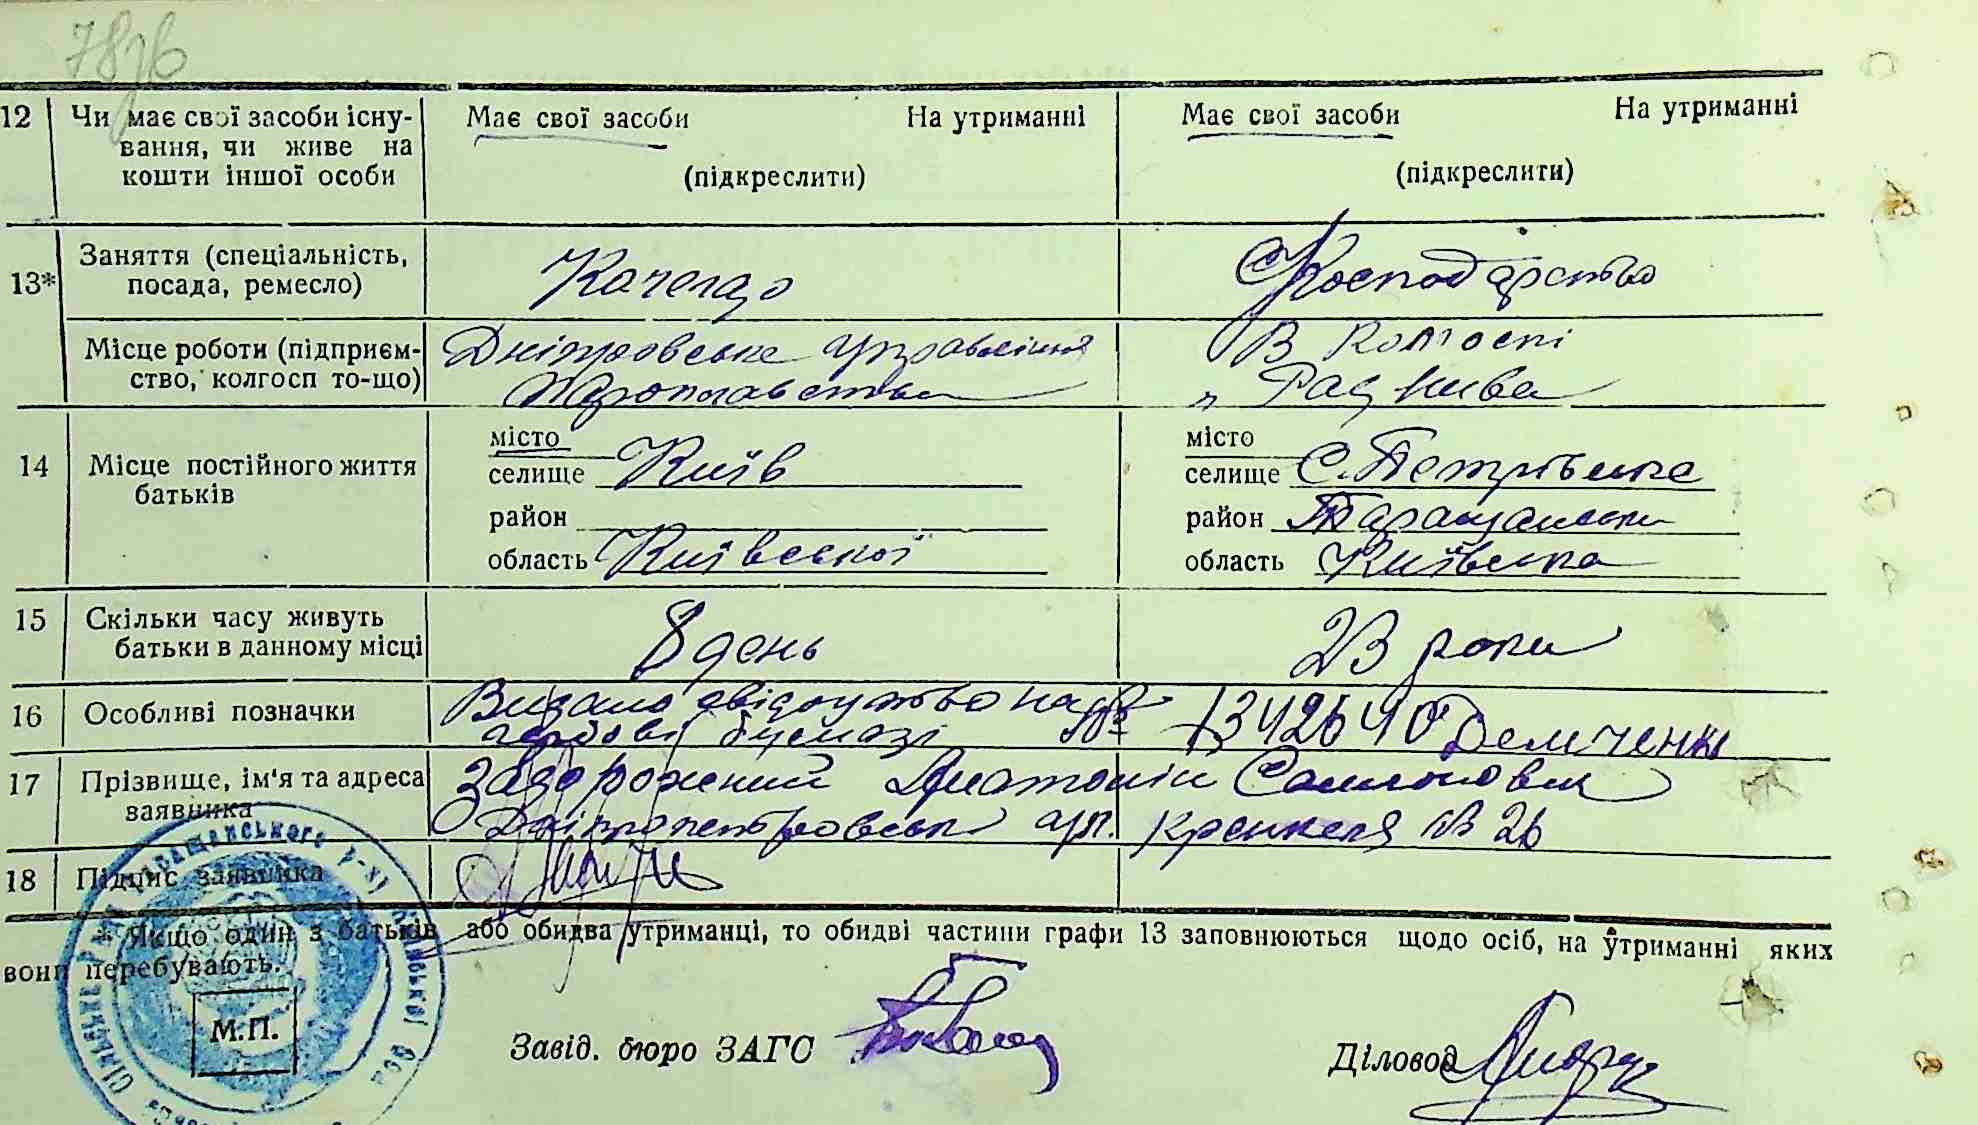 7876
12 Чи має свої засоби існу-
вання, чи живе на
кошти іншої особи
Має свої засоби На утриманні
(підкреслити)
Має свої засоби На утриманні
(підкреслити)
13* Заняття (спеціальність,
посада, ремесло)
Кочегар
Господарство
Місце роботи (підприєм-
ство, колгосп то-що)
Дніпровське управління
Пароплавства
В колгоспі
„ Рад Нива
14 Місце постійного життя
батьків
місто
селище Київ
район
область Київської
місто
селище С. Петрівське
район Таращански
область Київська
15 Скільки часу живуть
батьки в данному місці
8 день
23 роки
16 Особливі позначки
Видано свідоцтво на
гербові бумазі № 1342640 Демченко
17 Прізвище, ім'я та адреса
заявника
Задорожений Анатолій Самонович
Дніпропетровськ вул. Кренкеля № 26
18 Підпис заявника
* Якщо один з батьків або обидва утриманці, то обидві частини графи 13 заповнюються щодо осіб, на утриманні яких
вони перебувають.
М.П.
Завід. бюро ЗАГС
Діловод